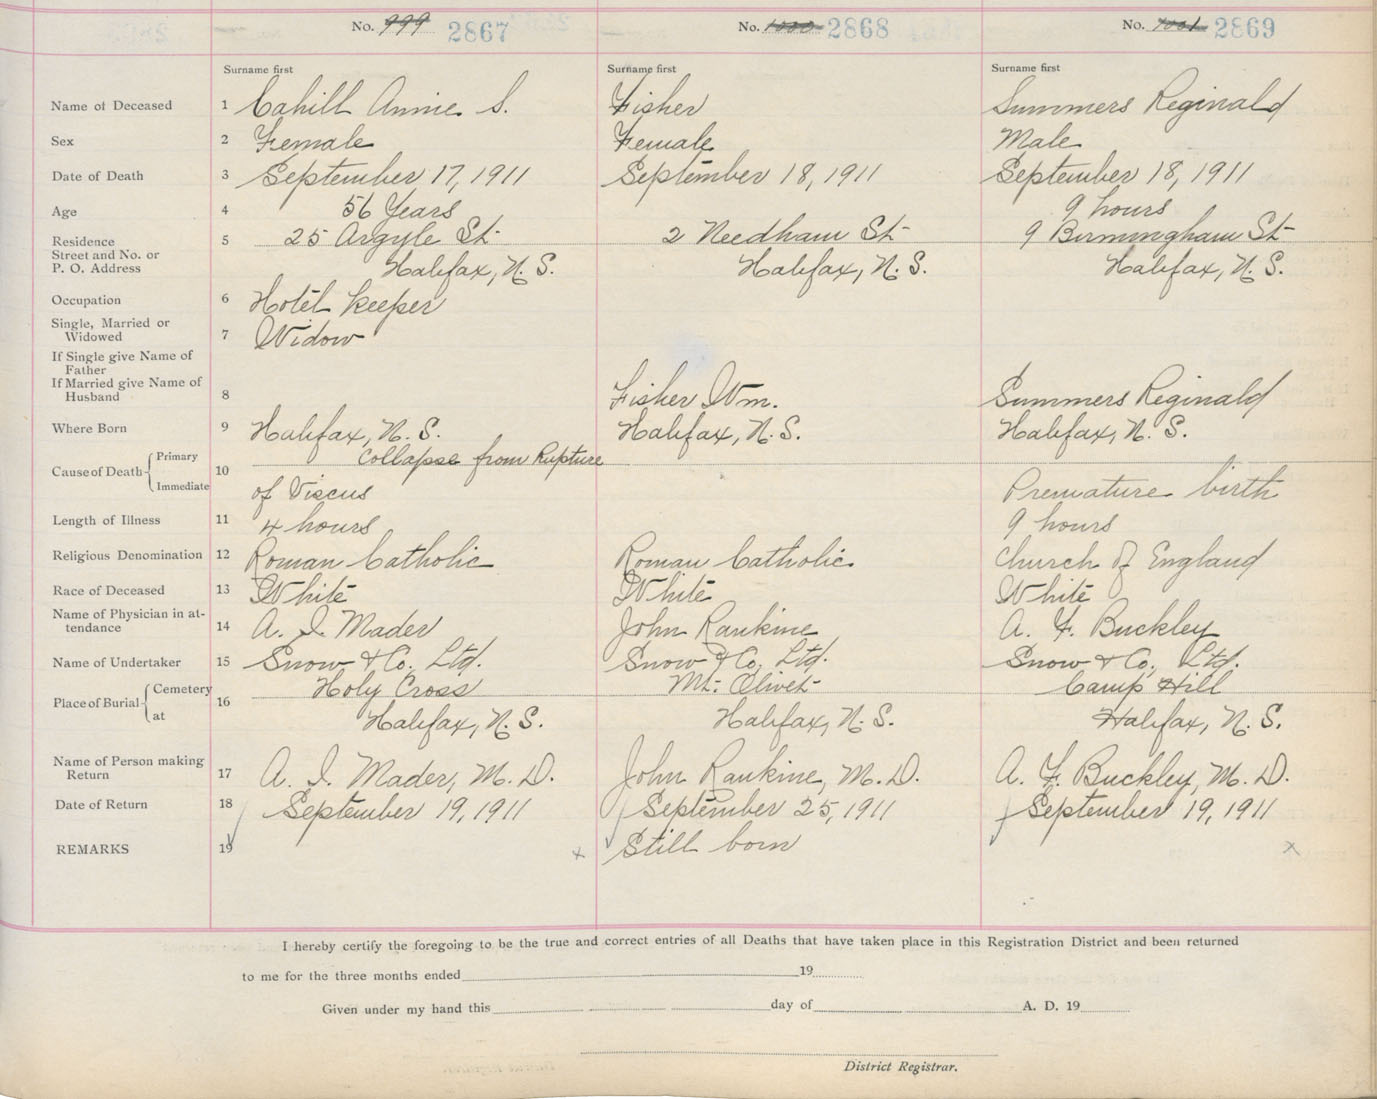 No. 999 2867 No. 1000 2868 No. 1001 2869
Surname first Surname first Surname first
Name of Deceased 1 Cahill Annie S. Fisher Summers Reginald
Sex 2 Female Female Male
Date of Death 3 September 17, 1911 September 18, 1911 September 18, 1911
Age 4 56 Years 9 hours
Residence 5 25 Argyle St. 2 Needham St. 9 Birmingham St.
Street and No. or
P. O. Address Halifax, N. S. Halifax, N. S. Halifax, N. S.
Occupation 6 Hotel Keeper
Single, Married or
Widowed 7 Widow
If Single give Name of
Father
If Married give Name of
Husband 8 Fisher Wm. Summers Reginald
Where Born 9 Halifax, N. S. Halifax, N. S. Halifax, N. S.
Cause of Death Primary Collapse from Rupture
10
Immediate of Viscus Premature birth
Length of Illness 11 4 hours 9 hours
Religious Denomination 12 Roman Catholic Roman Catholic Church of England
Race of Deceased 13 White White White
Name of Physician in at-
tendance 14 A. I. Mader John Rankine A. F. Buckley
Name of Undertaker 15 Snow & Co. Ltd. Snow & Co. Ltd. Snow & Co. Ltd.
Place of Burial Cemetery 16 Holy Cross Mt. Olivet Camp Hill
at Halifax, N. S. Halifax, N. S. Halifax, N. S.
Name of Person making
Return 17 A. I. Mader, M. D. John Rankine, M. D. A. F. Buckley, M. D.
Date of Return 18 September 19, 1911 September 25, 1911 September 19, 1911
REMARKS 19 x Still born x
I hereby certify the foregoing to be the true and correct entries of all Deaths that have taken place in this Registration District and been returned
to me for the three months ended 19
Given under my hand this day of A. D. 19
District Registrar.